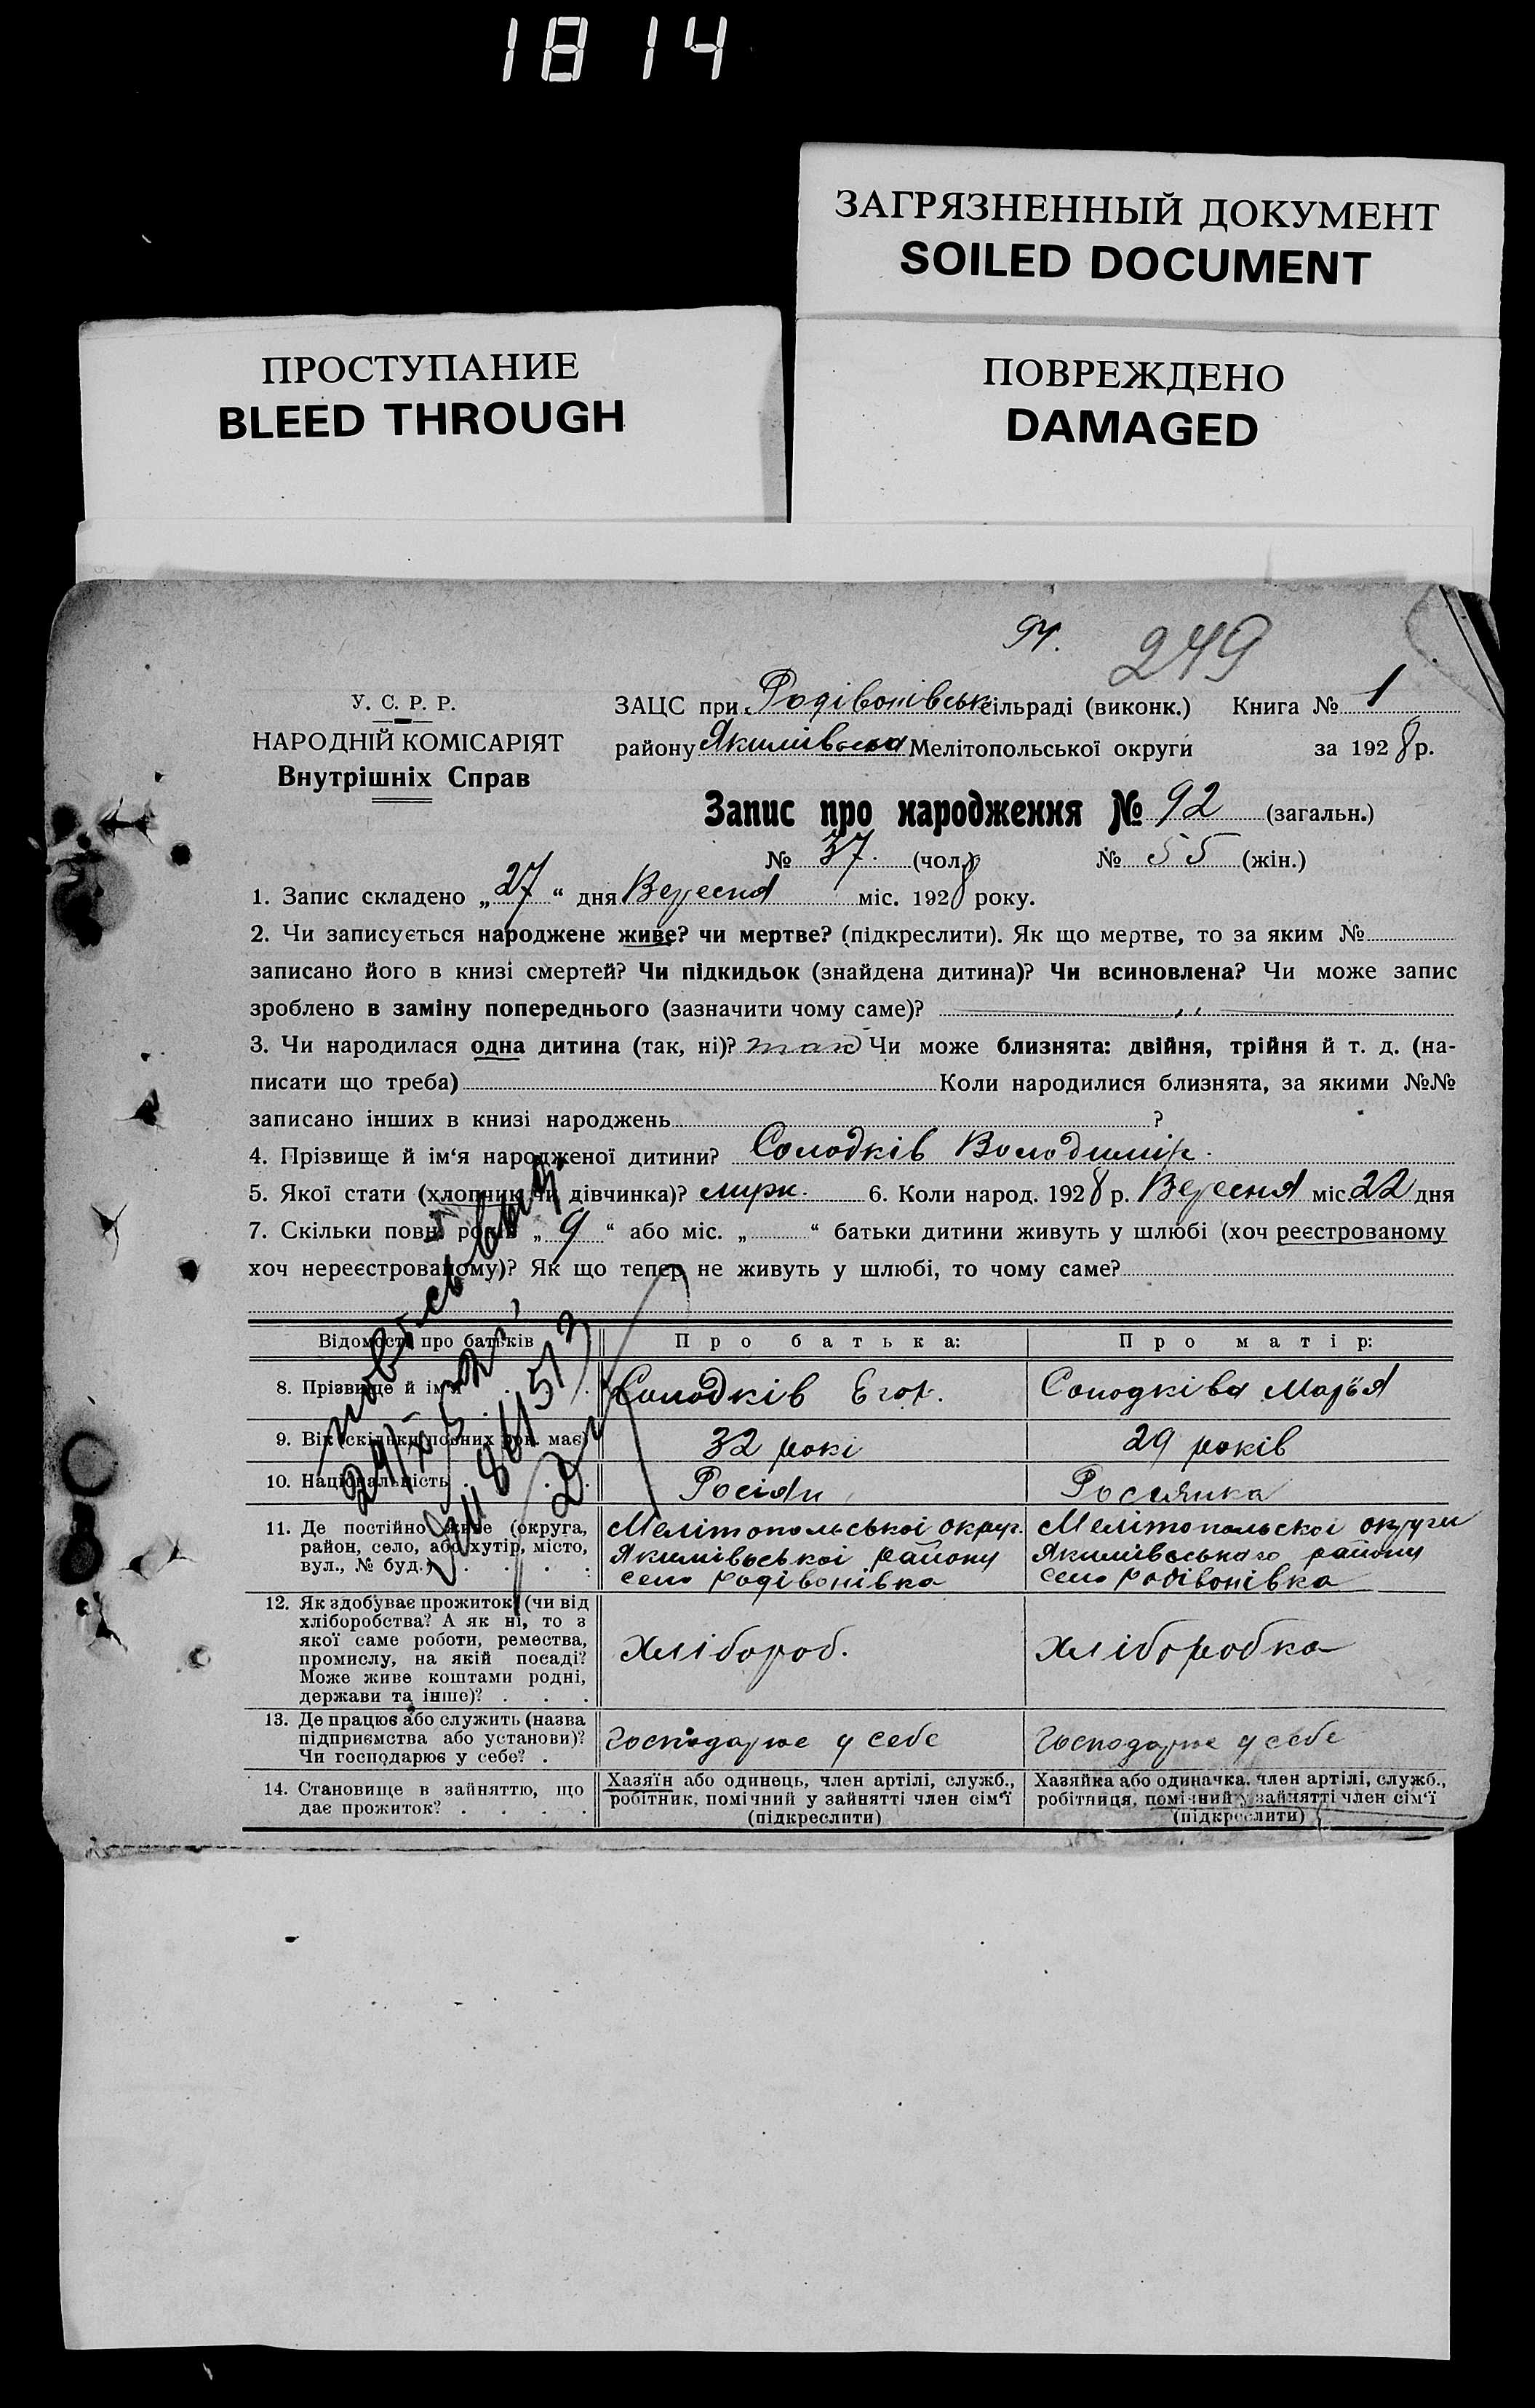 1814
ЗАГРЯЗНЕННЫЙ ДОКУМЕНТ
SOILED DOCUMENT
ПРОСТУПАНИЕ
BLEED THROUGH
ПОВРЕЖДЕНО
DAMAGED
94. 249
У. С. Р. Р.
НАРОДНІЙ КОМІСАРІЯТ
Внутрішніх Справ
ЗАЦС при Родівонівськ сільраді (виконк.) Книга № 1
району Якимівська Мелітопольської округи за 1928 р.
Запис про народження № 92 (загальн.)
№ 37. (чол.) № 55 (жін.)
1. Запис складено „27“ дня Вересня міс. 1928 року.
2. Чи записується народжене живе? чи мертве? (підкреслити). Як що мертве, то за яким №
записано його в книзі смертей? Чи підкидьок (знайдена дитина)? Чи всиновлена? Чи може запис
зроблено в заміну попереднього (зазначити чому саме)?
3. Чи народилася одна дитина (так, ні)? так Чи може близнята: двійня, трійня й т. д. (на-
писати що треба) Коли народилися близнята, за якими №№
записано інших в книзі народжень ?
4. Прізвище й ім‘я народженої дитини? Солодків Володимір.
5. Якої стати (хлопчик чи дівчинка)? 6. Коли народ. 1928 р. Вересня міс. 22 дня
7. Скільки повн. років „9“ або міс. „ “ батьки дитини живуть у шлюбі (хоч реєстрованому
хоч нереєстрованому)? Як що тепер не живуть у шлюбі, то чому саме?
Відомості про батьків Про батька: Про матір:
8. Прізвище й ім‘я Солодків Егор. Солодківа Мар‘я
9. Вік (скільки повних рок. має) 32 рокі 29 років
10. Національність Росіян Россиянка
11. Де постійно живе (округа,
район, село, або хутір, місто,
вул., № буд.)
Мелітопольської округ.
Якимівської району
село Родівонівка
Мелітопольскої округи
Якимівського району
село Родівонівка
12. Як здобуває прожиток (чи від
хліборобства? А як ні, то з
якої саме роботи, ремества,
промислу, на якій посаді?
Може живе коштами родні,
держави та інше)?
Хлібороб. Хліборобка
13. Де працює або служить (назва
підприємства або установи)?
Чи господарює у себе?
Господарює у себе Господарює у себе
14. Становище в зайняттю, що
дає прожиток?
Хазяїн або одинець, член артілі, служб.,
робітник, помічний у зайнятті член сім‘ї
(підкреслити)
Хазяйка або одиначка, член артілі, служб.,
робітниця, помічний у зайнятті член сім‘ї
(підкреслити)